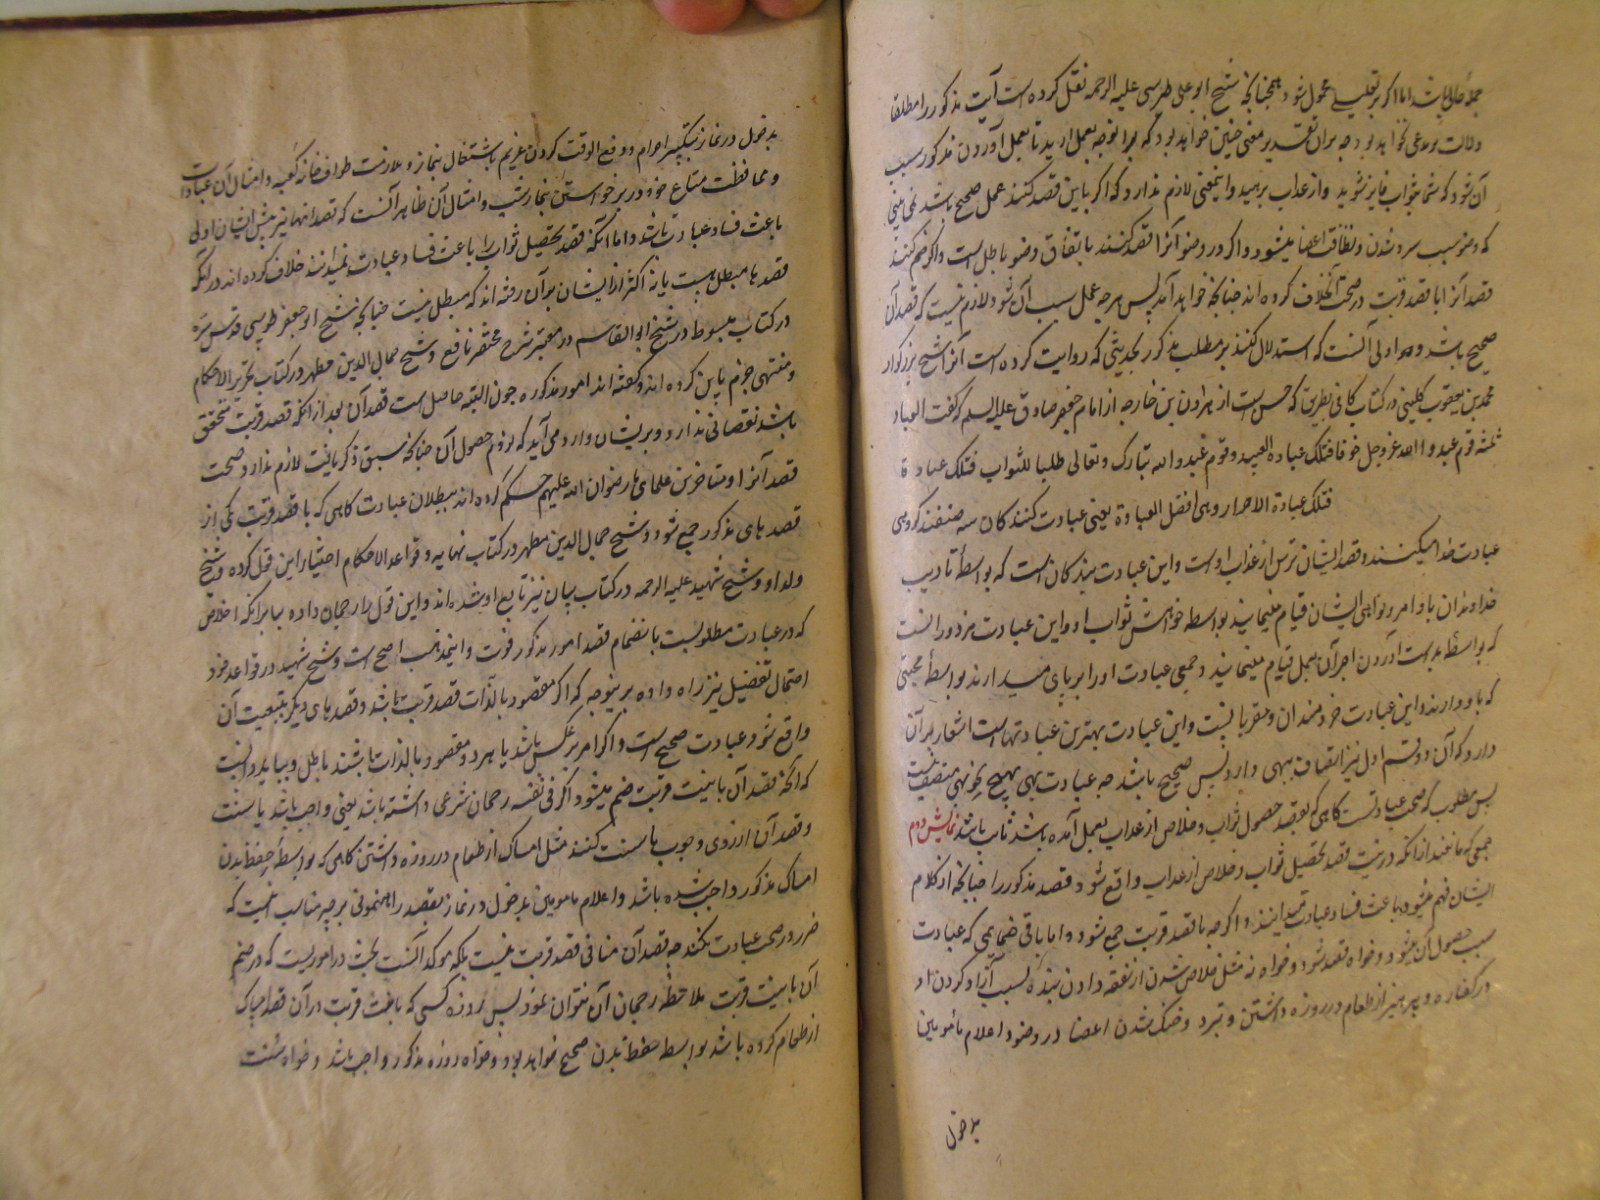 جمله حالیه باشد اما اگر بر تعلیل محمول شود همچنانکه شیخ ابو علی طبرسی علیه الرحمه نقل کرده است آیت مذکور را مطلقا
دلالت بر مدعی نخواهد بود چه بر آن تقدیر معنی چنین خواهد بود که بعمل آرید تا بعمل آوردن مذکور سبب
آن شود که شما بثواب فایز شوید و از عذاب برهید و این معنی لازم ندارد که اگر باین قصد کنند عمل صحیح باشد نمی بینی
که وضو سبب سرد شدن و نظافت اعضا میشود و اگر در وضو آنرا قصد کنند باتفاق وضو باطل است و اگر ضم کنند
قصد آنرا با قصد قربت در صحت آن خلاف کرده اند چنانکه خواهد آمد پس هر چه عمل سبب آن شود لازم نیست که قصد آن
صحیح باشد و اولی آنست که استدلال کنند بر مطلب مذکور بحدیثی که روایت کرده است آنرا شیخ بزرگوار
محمد بن یعقوب کلینی در کتاب کافی بطریق که حسن است از هارون بن خارجه از امام جعفر صادق علیه السلم که گفت العباد
ثلثة قوم عبدوا الله عز وجل خوفا فتلک عبادة العبید وقوم عبدوا الله تبارک وتعالی طلبا للثواب فتلک عبادة
فتلک عبادة الاحرار وهی افضل العبادة یعنی عبادت کنندکان سه صنفند گروهی
عبادت خدا میکنند و قصد ایشان ترس از عذاب اوست و این عبادت بندکان است که بواسطهٔ تادیب
خداوندان باوامر و نواهی ایشان قیام مینمایند بواسطه خواهش ثواب او و این عبادت مزدورانست
که بواسطهٔ بدست آوردن اجر آن بعمل قیام مینمایند و جمعی عبادت او را برپای میدارند بواسطهٔ محبتی
که باو دارند و این عبادت خردمندان و مقربانست و این عبادت بهترین عبادتهاست اشعار بر آن
دارد که آن دو قسم اول نیز اتصاف ببهی دارد پس صحیح باشد چه عبادت بهی بهیچ نحو بهی متصف نیست
پس مطلوب که صحت عبادتست کاهی که بقصد حصول ثواب و خلاص از عذاب بعمل آمده باشد ثابت باشد نمایش دوم
جمعی که مانعند از آنکه در نیت قصد تحصیل ثواب و خلاص از عذاب واقع شود قصد مذکور را چنانچه از کلام
ایشان فهم میشود باعث فساد عبادت میدانند و اگر چه با قصد قربت جمع شود و اما باقی ضمایمی که عبادت
سبب حصول آن میشود و خواه قصد شود و خواه نه مثل خلاص شدن از نفقه دادن بنده بسبب آزاد کردن او
در کفاره و پرهیز از طعام در روزه داشتن و تبرد و خنک شدن اعضا در وضو و اعلام مامومین
بدخول
بدخول در نماز بتکبیر احرام و دفع الوقت کردن غریم باشتغال بنماز و ملازمت طواف خانه کعبه و امثال آن عبادات
و محافظت متاع خود در برخواستن بنماز شب و امثال آن ظاهر آنست که قصد انها نیز پیش ایشان اولی
باعث فساد عبادت باشد و اما آنکه قصد تحصیل ثواب را باعث فساد عبادت نمیدانند خلاف کرده اند در آنکه
قصد ها مبطل هست یا نه اکثر از ایشان بر آن رفته اند که مبطل نیست چنانچه شیخ ابو جعفر طوسی قدس سره
در کتاب مبسوط و شیخ ابو القاسم در معتبر شرح مختصر نافع و شیخ جمال الدین مطهر در کتاب تحریر الاحکام
و منتهی جزم باین کرده اند و گفته اند امور مذکوره چون البته حاصل است قصد آن بعد از آنکه قصد قربت متحقق
باشد نقصانی ندارد و بر ایشان وارد می آید که لزوم حصول آن چنانکه سبق ذکر یافت لازم ندارد صحت
قصد آنرا و متاخرین علمای ما رضوان الله علیهم حکم کرده اند ببطلان عبادت کاهی که با قصد قربت یکی از
قصد های مذکور جمع شود و شیخ جمال الدین مطهر در کتاب نهایه و قواعد الاحکام اختیار این قول کرده و شیخ
ولد او و شیخ شهید علیه الرحمه در کتاب بیان نیز تابع او شده اند و این قول را رجحان داده بنابر آنکه اخلاص
که در عبادت مطلوبست بانضمام قصد امور مذکور فوت و این مذهب اصح است و شیخ شهید در قواعد خود
احتمال تفضیل نیز راه داده برینوجه که اگر مقصود بالذات قصد قربت باشد و قصد های دیگر بتبعیت آن
واقع شود عبادت صحیح است و اگر امر بر عکس باشد یا هر دو مقصود بالذات باشند باطل و بباید دانست
که آنچه قصد آن با نیت قربت ضم میشود اگر فی نفسه رجحان شرعی داشته باشد یعنی واجب باشد یا سنت
و قصد آن از روی وجوب یا سنت کنند مثل امساک از طعام در روزه داشتن کاهی که بواسطهٔ حفظ بدن
امساک مذکور واجب شده باشد و اعلام مامومین بدخول در نماز بقصد راهنمونی بر چیز مناسب نیست که
ضرر در صحت عبادت بکند چه قصد آن منافی قصد قربت نیست بلکه موکد آنست بحث در اموریست که در ضم
آن با نیت قربت ملاحظه رجحان آن نتوان نمود پس روزه کسی که با نیت قربت در آن قصد امساک
از طعام کرده باشد بواسطه حفظ بدن صحیح خواهد بود و خواه روزه مذکور واجب باشد و خواه سنت